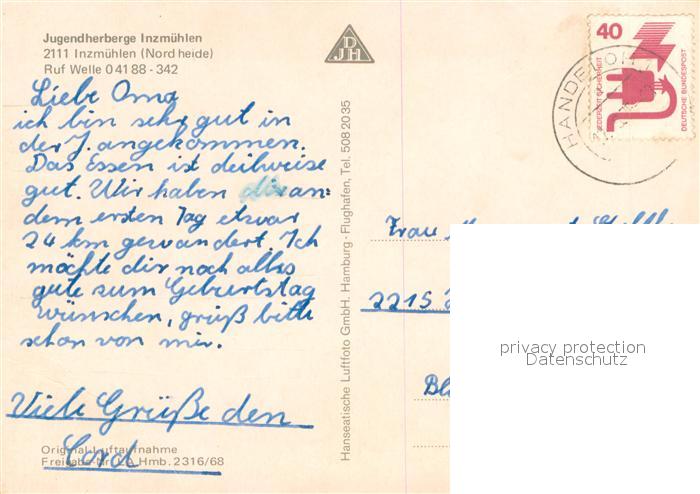 Jugendherberge Inzmühlen
2111 Inzmühlen (Nordheide)
Ruf Welle 0 41 88 - 342
Liebe Oma
ich bin sehr gut in
der J. angekommen.
Das Essen ist deilweise
gut. Wir haben an=
dem ersten Tag etwar
24 km gewandert. Ich
möchte dir noch alles
gute zum Geburtstag
wünschen, grüß bitte
schon von mir.
Viele Grüße den
Cord
Original-Luftaufnahme
Freigabe-Nr. LA Hmb. 2316/68
DJH
Hanseatische Luftfoto GmbH. Hamburg - Flughafen, Tel. 5082035
40
JEDERZEIT SICHERHEIT
DEUTSCHE BUNDESPOST
HANDELOH
Frau
2215
privacy protection
Datenschutz